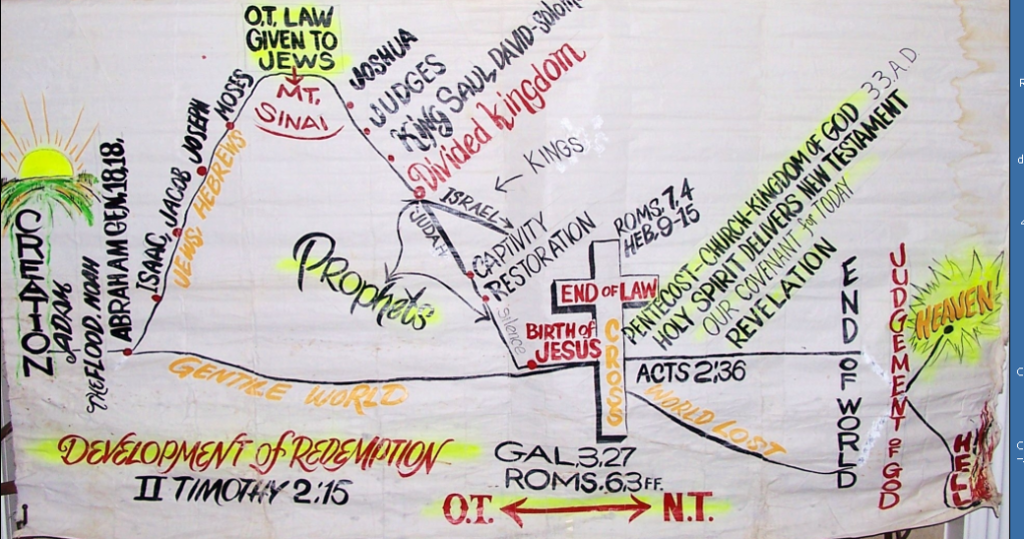 O.T. LAW
GIVEN TO
JEWS
MT.
SINAI
CREATION
THE FLOOD. NOAH
ABRAHAM GEN.18.18.
ISAAC,
JACOB
JOSEPH
MOSES
JEWS. HEBREWS
JOSHUA
JUDGES
KING SAUL DAVID-
Divided Kingdom
KINGS
ISRAEL
JUDAH
Prophets
CAPTIVITY
RESTORATION
silence
BIRTH of
JESUS
END OF LAW
CROSS
ROMS. 7,4
HEB. 9-15
33 A.D.
PENTECOST-CHURCH-KINGDOM OF GOD
HOLY SPIRIT DELIVERS NEW TESTAMENT
OUR COVENANT for TODAY
REVELATION
ACTS 2:36
GENTILE WORLD
WORLD LOST
END OF WORLD
JUDGEMENT OF GOD
HEAVEN
HELL
DEVELOPMENT of REDEMPTION
II TIMOTHY 2:15
GAL.3.27
ROMS.6.3 FF.
O.T.
N.T.